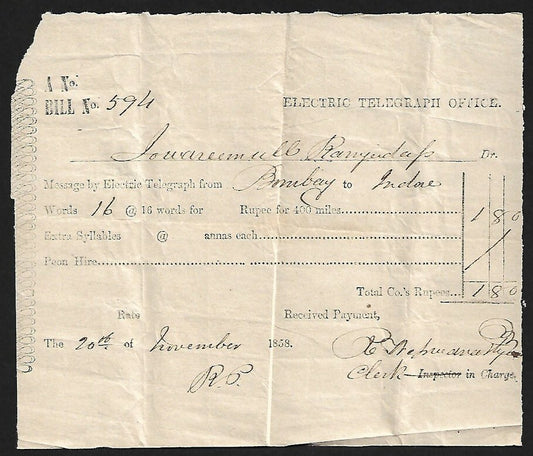 A No.
BILL No. 594
ELECTRIC TELEGRAPH OFFICE.
Jowareemull Dr.
Message by Electric Telegraph from Bombay to Indore
Words 16 @ 16 words for Rupee for 400 miles 1 8 0
Extra Syllables @ annas each
Peon Hire
Total Co.'s Rupees 1 8 0
Rate Received Payment,
The 20th of November 1858.
Clerk Inspector in Charge.